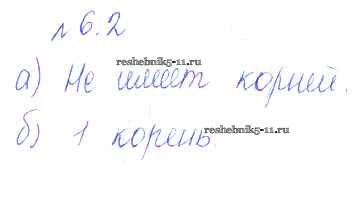 № 6.2
reshebnik5-11.ru
а) Не имеет корней.
reshebnik5-11.ru
б) 1 корень